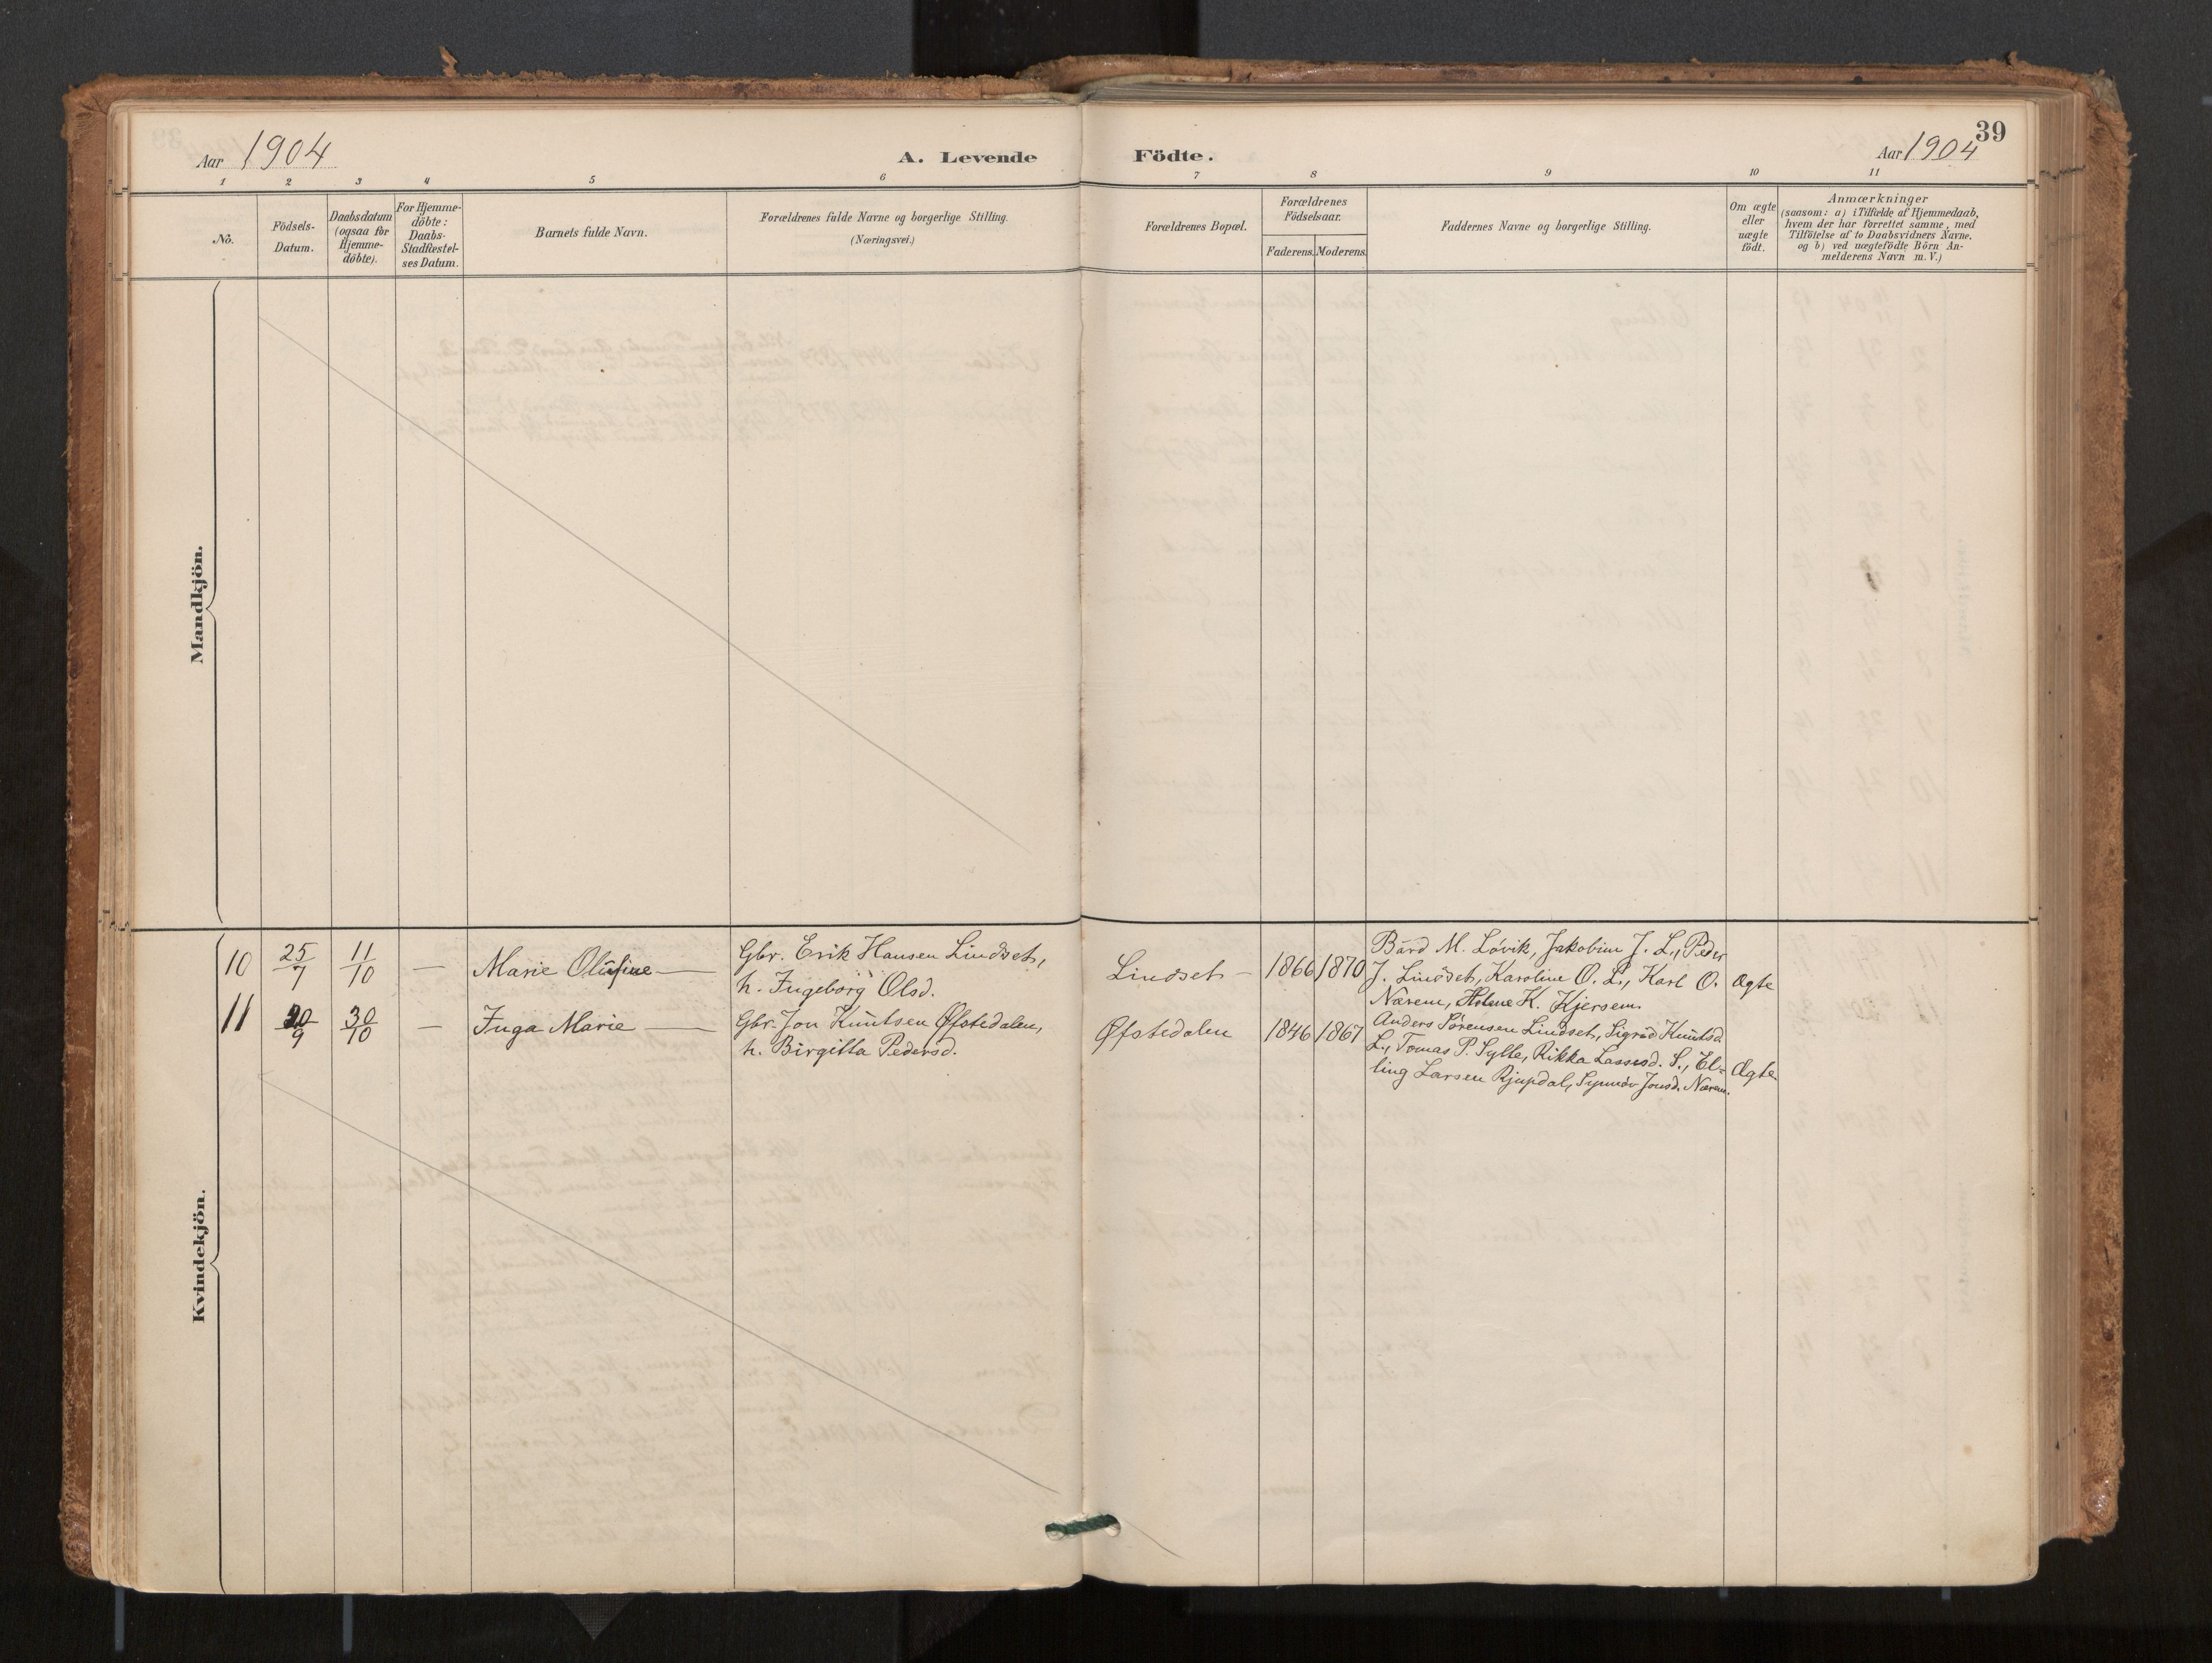 39
Aar 1904
A. Levende Födte.
Aar 1904
1 2 3 4 5 6 7 8 9 10 11
No.
Födsels-
Datum.
Daabsdatum
(ogsaa for
Hjemme-
döbte).
For Hjemme-
döbte:
Daabs-
Stadfæstel-
ses Datum.
Barnets fulde Navn.
Forældrenes fulde Navne og borgerlige Stilling.
(Næringsvei.)
Forældrenes Bopæl.
Forældrenes
Födselsaar.
Faderens. Moderens.
Faddernes Navne og borgerlige Stilling.
Om ægte
eller
uægte
födt.
Anmærkninger
(saasom: a) i Tilfælde af Hjemmedaab,
hvem der har forrettet samme, med
Tilföielse af to Daabsvidners Navne,
og b) ved uægtefödte Börn An-
melderens Navn m.V.)
Mandkjön.
Kvindekjön.
10 25/7 11/10 — Marie Olufine —
Gbr. Erik Hansen Lindset,
h. Ingeborg Olsd.
Lindset — 1866 1870
Bård M. Løvik, Jakobine J. L., Peder
J. Lindset, Karoline O. L., Karl O.
Nærem, Helene K. Kjersem.
Ægte
11 20/9 30/10 — Inga Marie —
Gbr. Jon Knutsen Øfstedalen,
h. Birgitta Pedersd.
Øfstedalen 1846 1867
Anders Sørensen Lindset, Sigrid Knutsd.
L., Tomas P. Sylte, Rikka Lassesd. S., El-
ling Larsen Rjupdal, Synnøv Jonsd. Nærem.
Ægte